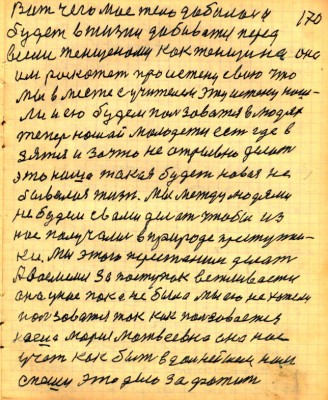 Вот чего мое тело добилось и
170
будет в жизни добивать перед
всеми женщинами как женщина она
им роскажет про истену свою что
мы вместе с учителем эту истену нош-
ли и ею будем ползоватся в людях
тепер нашай молодежи ест где в
зятся и за что не отрывно делать
это наша такая будет новая не
бывалая жизн. Мы между людями
не будем с вами делать чтобы из
нас получали в природе преступни-
ки. Мы этого перестаним делать
А возмеми за поступок вежливасти
она у нас пока не была мы ею не хотели
ползоватся так как ползовается
наша Мария Матвеевна она нас
учат как быт в далнейшем нам
спаши это дело за фатит